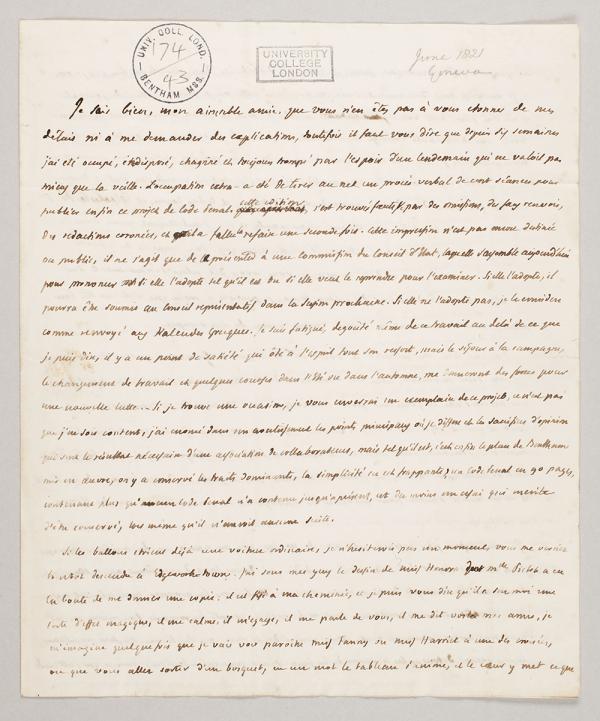 UNIV. COLL. LOND.
174
43
BENTHAM MSS.
UNIVERSITY
COLLEGE
LONDON
June 1821
Geneva
Je sais bien, mon aimable amie, que vous n'en êtes pas à vous étonner de mes
délais ni à me demander des explications, toutefois il faut vous dire que depuis six semaines
j'ai été occupé, indisposé, chagriné et toujours trompé par l'espoir d'un lendemain qui ne valoit pas
mieux que la veille. L'occupation extra a été de tirer au net un procès verbal de cent séances pour
publier enfin ce projet de Code penal. cette edition s'est trouvée fautif, par des omissions, des faux renvois,
des redactions erronées, et il a fallu refaire une seconde fois. Cette impression n'est pas meme destinée
au public, il ne s'agit que de présenté à une Commission du Conseil d'Etat, laquelle s'assemble aujourd'hui
pour prononcer si elle l'adopte tel qu'il est ou si elle veut le reprendre pour l'examiner. Si elle l'adopte, il
pourra être soumis au Conseil représentatif dans la session prochaine. Si elle ne l'adopte pas, je le considère
comme renvoyé aux Kalendes Grecques. Je suis fatigué, degouté même de ce travail au delà de ce que
je puis dire, il y a un point de satiété qui ôte à l'esprit tout son ressort, mais le séjour à la campagne,
le changement de travail et quelques courses dans l'Eté ou dans l'automne, me donneront des forces pour
une nouvelle lutte. Si je trouve une occasion, je vous enverrai un exemplaire de ce projet, ce n'est pas
que j'en sois content, j'ai enoncé dans un avertissement les points principaux où je diffère et les sacrifices d'opinion
qui sont le résultat nécessaire d'une association de collaborateurs, mais tel qu'il est, c'est enfin le plan de Bentham
mis en œuvre, on y a conservé les traits dominants, la simplicité en est frappante, un Code penal en 90 pages,
contenant plus qu'aucun Code penal n'a contenu jusqu'à présent, est du moins un essai qui mérite
d'être conservé, lors même qu'il n'auroit aucune suite.
Si les ballons étoient déjà une voiture ordinaire, je n'hésiterois pas un moment, vous me verriez
descendre à Edgeworth-town. J'ai sous mes yeux le dessin de miss Honora dont Mlle Pictet a eu
la bonté de me donner une copie: il est à ma cheminée, et je puis vous dire qu'il a sur moi une
sorte d'effet magique, il me calme, il m'égaye, il me parle de vous, il me dit vos amis, je
m'imagine quelquefois que je vais voir paroître miss Fanny ou miss Harriet à une des croisées,
ou que vous allez sortir d'un bosquet, en un mot le tableau s'anime, et le cœur y met ce que